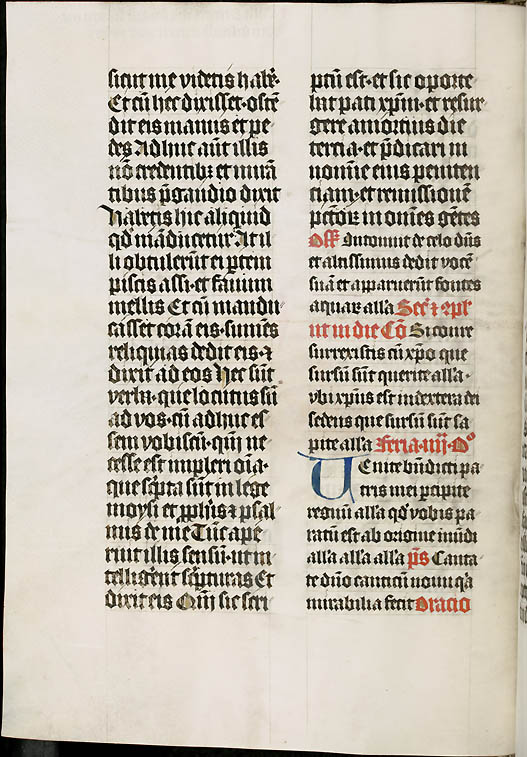 sicut me videtis habẽ·
Et cũ hec dixisset· ostẽ
dit eis manus et pe
des Adhuc aũt illis
nõ credentibȝ et mirã
tibus p̃ gaudio dixit
Habetis hic aliquid
qð mãducetur At il
li obtulerũt ei ptem
piscis assi· et fauum
mellis Et cũ mandu
casset corã eis· sumẽs
reliquias dedit eis· ⁊
dixit ad eos Hec sũt
verba· que locutus sũ
ad vos· cũ adhuc es
sem vobiscũ· qm̃ ne
cesse est impleri oĩa·
que sc̃pta sũt in lege
moysi et ꝓphis ⁊ psal
mis de me Tũc ape
ruit illis sensũ· ut in
telligerẽt sc̃pturas Et
dixit eis Qm̃ sic scri
ptũ est· et sic oporte
bat pati xp̃m· et resur
gere a mortuis die
tercia· et p̃dicari in
nomine eius peniten
ciam· et remissionẽ
pctõꝝ in omnes gẽtes
Off̃ Intonuit de celo dñs
et altissimus dedit vocẽ
suã et apparuerũt fontes
aquaꝝ alla Sec̃ ⁊ ꝯpl̃
ut in die Cõ Si conre
surrexistis cũ xp̃o que
sursũ sũt querite alla·
vbi xp̃us est in dextera dei
sedens que sursũ sũt sa
pite alla Feria· iiij· Oᵒ
Venite bñdicti pa
tris mei ꝑcipite
regnũ alla qð vobis pa
ratũ est ab origine mũdi
alla alla alla p̃s Canta
te dño canticũ nouũ q̃a
mirabilia fecit Oracio